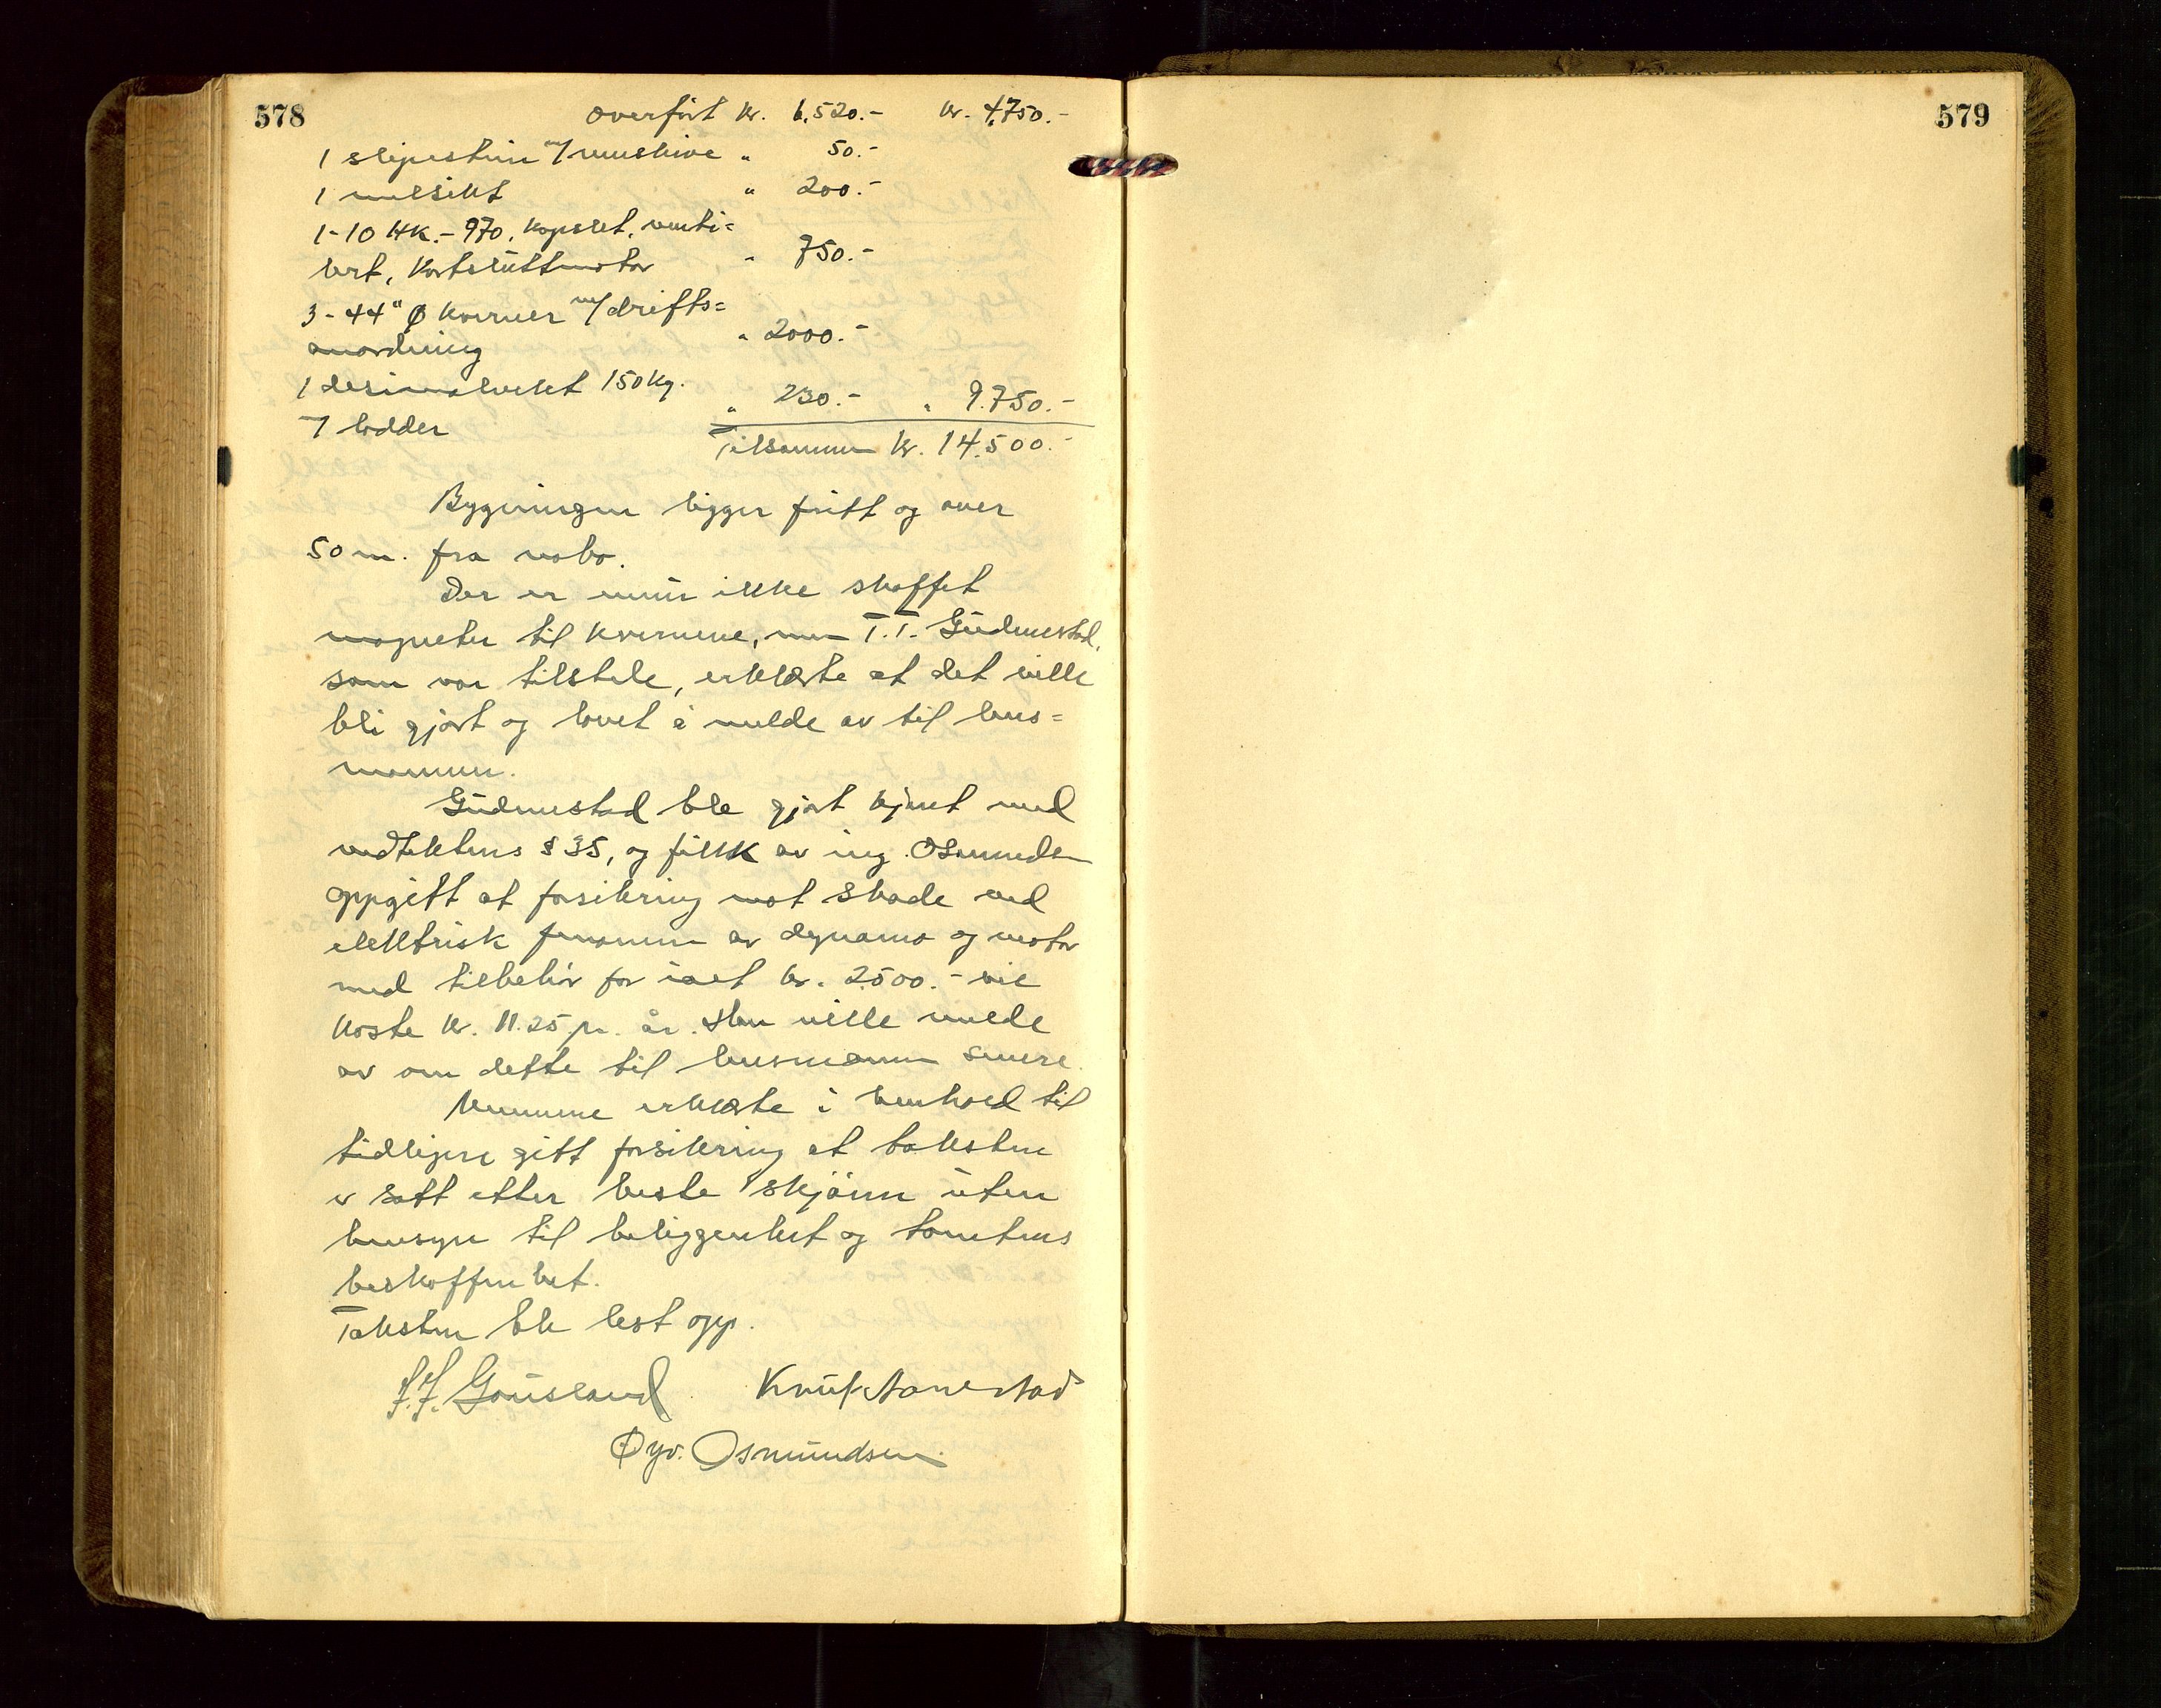 578
Overført kr. 6.520.- kr. 4.750.-
1 slipestein m/ remskive " 50.-
1 melsikt " 200.-
1-10 HK.- 970, kapslet, venti=
lert, Kortsluttmotor " 750.-
3- 44" Ø kverner m/ drifts=
anordning " 2000.-
1 desimalvekt 150 kg.
7 lodder " 230.- " 9.750.-
Tilsammen kr. 14.500.-
Bygningen ligger fritt og over
50 m. fra nabo.
Der er ennu ikke skaffet
magneter til kvernene, men T.T. Gudmestad,
som var tilstede, erklærte at det ville
bli gjort og lovet å melde av til lens=
mannen.
Gudmestad ble gjort kjent med
vedtektens § 35, og fikk av ing. Osmundsen
oppgitt at forsikring mot skade ved
elektrisk fenomen av dynamo og motor
med tilbehør for ialt kr. 2500.- vil
koste kr. 11.25 pr. år. Han ville melde
av om dette til lensmannen senere.
Mennene erklærte i henhold til
tidligere gitt forsikring at taksten
er satt etter beste skjønn uten
hensyn til beliggenhet og tomtens
beskaffenhet.
Taksten ble lest opp.
Gausland Knut Aanestad
Øyv. Osmundsen.
579